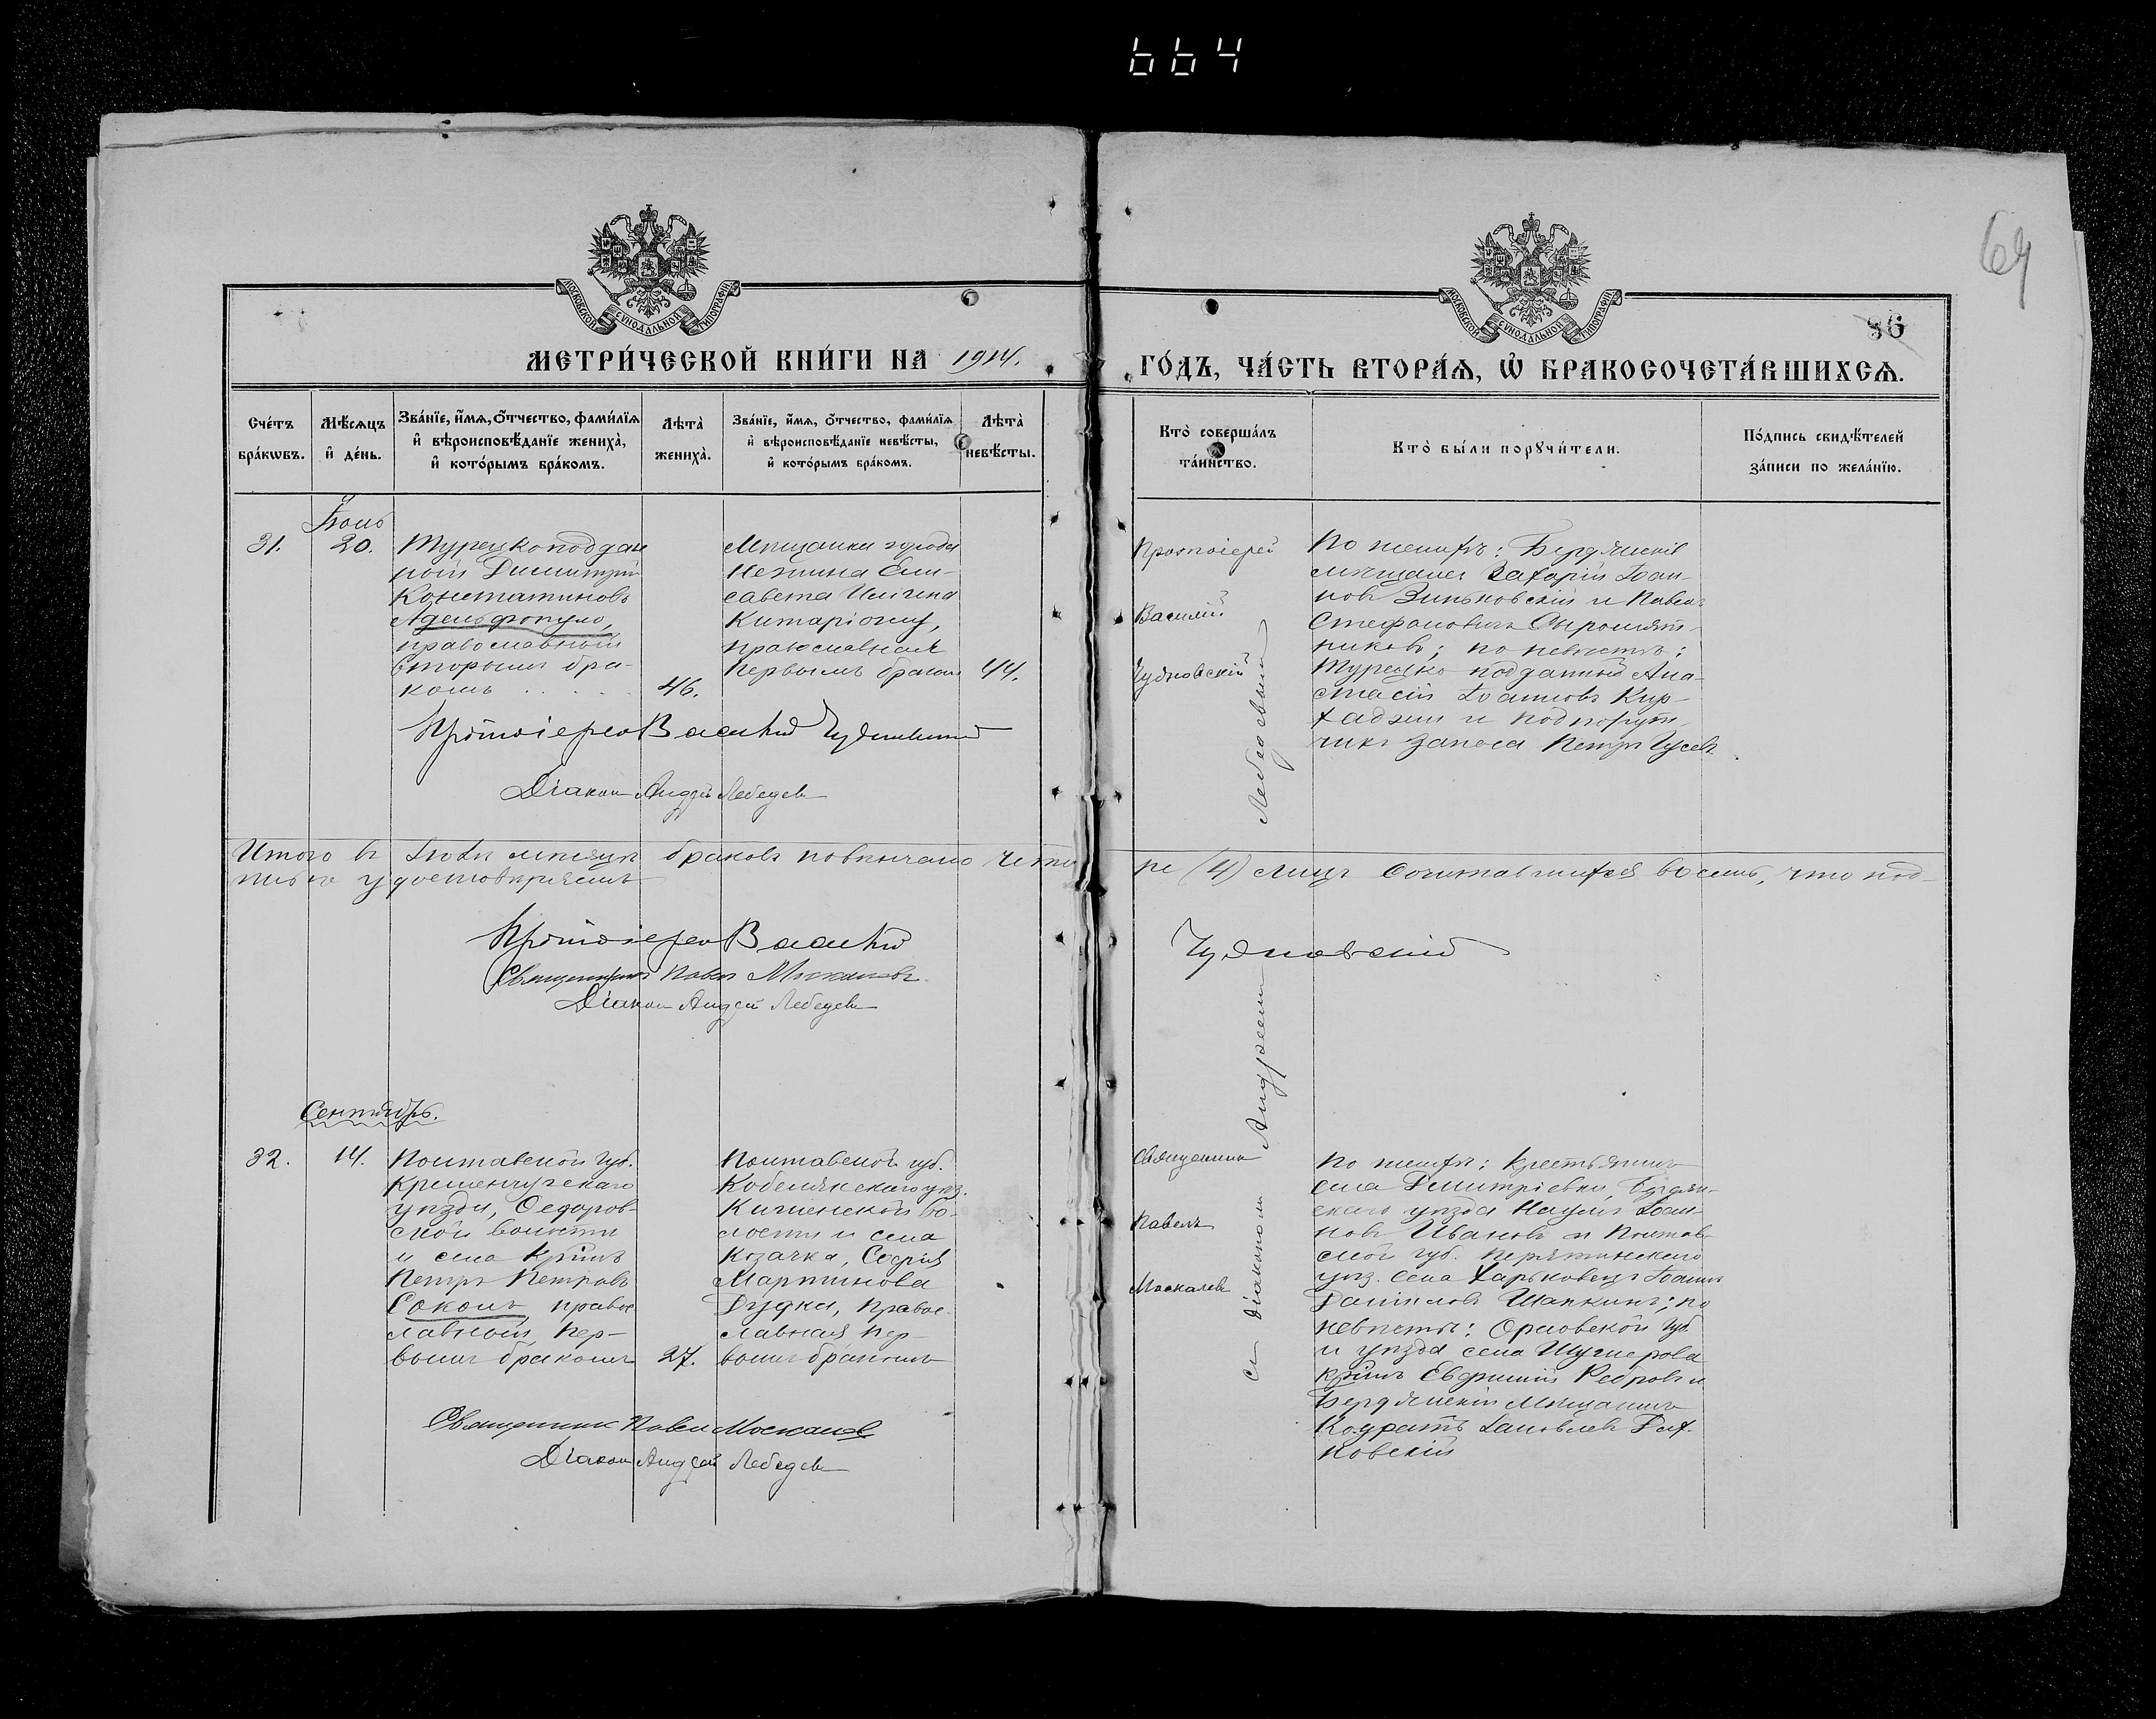 664
69
86
МОСКОВСКОЙ СѴНОДАЛЬНОЙ ТИПОГРАФІИ
МОСКОВСКОЙ СѴНОДАЛЬНОЙ ТИПОГРАФІИ
МЕТРИ́ЧЕСКОЙ КНИ́ГИ НА 1914.
ГО́ДЪ, ЧА́СТЬ ВТОРА́Я, Ѡ БРАКОСОЧЕТА́ВШИХСЯ.
Сче́тъ бра́кѡвъ.
Мѣ́сяцъ и де́нь.
Зва́нїе, и́мя, о́тчество, фами́лїя и вѣроисповѣ́данїе жениха̀, и кото́рымъ бра́комъ.
Лѣта̀ жениха̀.
Зва́нїе, и́мя, о́тчество, фами́лїя и вѣроисповѣ́данїе невѣ́сты, и кото́рымъ бра́комъ.
Лѣта̀ невѣ́сты.
Кто̀ соверша́лъ та́инство.
Кто̀ бы́ли порꙋчи́тели.
По́дпись свидѣ́телей за́писи по жела́нїю.
31.
20.
Турецкоподдан
ный Димитрій
Константиновъ
Адельфопуло,
православный
вторымъ бра-
комъ
46.
Мѣщанка города
Нѣжина Ели-
савета Ильина
Китаріоглу,
православная
первымъ бракомъ
44.
Протоіерей
Василій
Чудновскій
съ Діакономъ Андреемъ Лебедевымъ
По женихѣ: Бердянскіе
мѣщане Захарій Іоан-
новъ Зиньковскій и Павелъ
Стефановичъ Сыромят-
никовъ; по невѣстѣ:
Турецко подданный Ана-
стасій Іоанновъ Кир-
хаджи и подпоруч-
чикъ запаса Петръ Гусевъ.
Протоіерей Василій Чудновскій
Діаконъ Андрей Лебедевъ
Итого въ мѣсяцѣ браковъ повѣнчано четы
ре (4) лицъ сочетавшихся восемь, что под-
писью удостовѣряемъ
Протоіерей Василій
Чудновскій
Священникъ Павел Москалевъ
Діаконъ Андрей Лебедевъ
Сентябрь.
32.
14.
Полтавской губ.
Кременчугскаго
уѣзда, Ѳедоров-
ской волости
и села Кр̃нинъ
Петръ Петровъ
Соколъ, право
славный, пер-
вымъ бракомъ
27.
Полтавской губ.
Кобелякскаго уѣз.
Кишенской во-
лости и села
Козачка, Софія
Мартинова
Дудка, право-
славная пер-
вымъ бракомъ
Священникъ
Павелъ
Москалевъ
По женихѣ: крестьянинъ
села Димитріевки, Бердян-
скаго уѣзда Наумъ Іоан-
новъ Ивановъ и Полтав-
ской губ. Пирятинскаго
уѣз. села Харьковецъ Іоаннъ
Даниловъ Шапкинъ; по
невѣстѣ: Орловской губ.
и уѣзда села
кр̃нинъ Евфимій Ребровъ и
Бердянскій мѣщанинъ
Кодратъ Іаковлевъ
Священникъ Павел Москалев
Діаконъ Андрей Лебедевъ